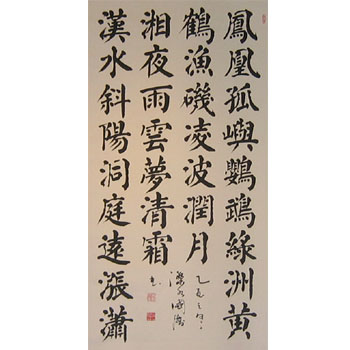 鳳凰孤嶼鸚鵡綠洲黃
鶴漁磯凌波潤月
漢水斜陽洞庭遠漲瀟
湘夜雨雲夢清霜